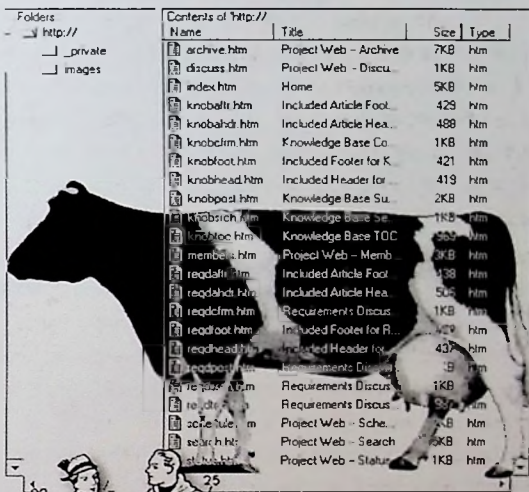 Folders
http://
_private
images
Contents of 'http://
Name Title Size Type
archive.htm Project Web - Archive 7KB htm
discuss.htm Project Web - Discu... 1KB htm
index.htm Home 5KB htm
knobaftr.htm Included Article Foot... 429 htm
knobahdr.htm Included Article Hea... 488 htm
knobcfrm.htm Knowledge Base Co... 1KB htm
knobfoot.htm Included Footer for K... 421 htm
knobhead.htm Included Header for ... 419 htm
knobpost.htm Knowledge Base Su... 2KB htm
knobsrch.htm Knowledge Base Se... 1KB htm
knobtoc.htm Knowledge Base TOC htm
members.htm Project Web - Memb... 3KB htm
reqdaftr.htm Included Article Foot... 438 htm
reqdahdr.htm Included Article Hea... 506 htm
reqdcfrm.htm Requirements Discus... 1KB htm
reqdfoot.htm Included Footer for R... 429 htm
reqdhead.htm Included Header for ... 437 htm
reqdpost.htm Requirements Discus... htm
Requirements Discus... 1KB htm
Requirements Discus... htm
schedule.htm Project Web - Sche... htm
search.htm Project Web - Search htm
status.htm Project Web - Status 1KB htm
25